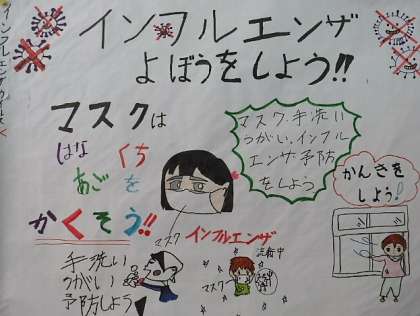 インフルエンザ
よぼうをしよう!!
マスクは
はな くち
あごを
かくそう!!
マスク、手洗い
うがい、インフル
エンザ予防
をしよう
かんきを
しよう!
マスク
インフルエンザ
流行中
マスク
手洗い
うがい
予防しよう